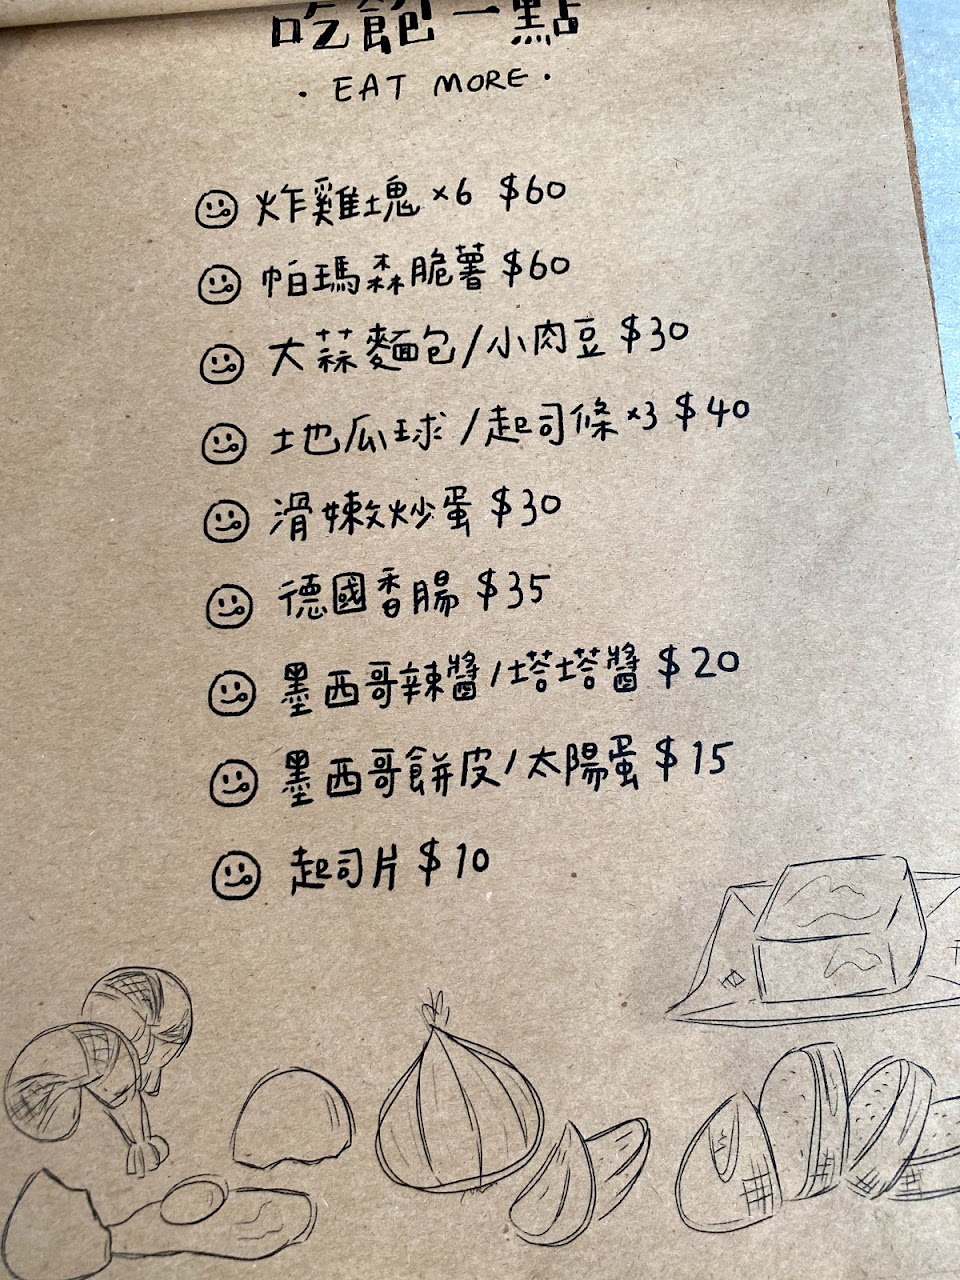 吃飽一點
· EAT MORE ·
炸雞塊×6 $60
帕瑪森脆薯 $60
大蒜麵包/小肉豆 $30
地瓜球/起司條×3 $40
滑嫩炒蛋 $30
德國香腸 $35
墨西哥辣醬/塔塔醬 $20
墨西哥餅皮/太陽蛋 $15
起司片 $10